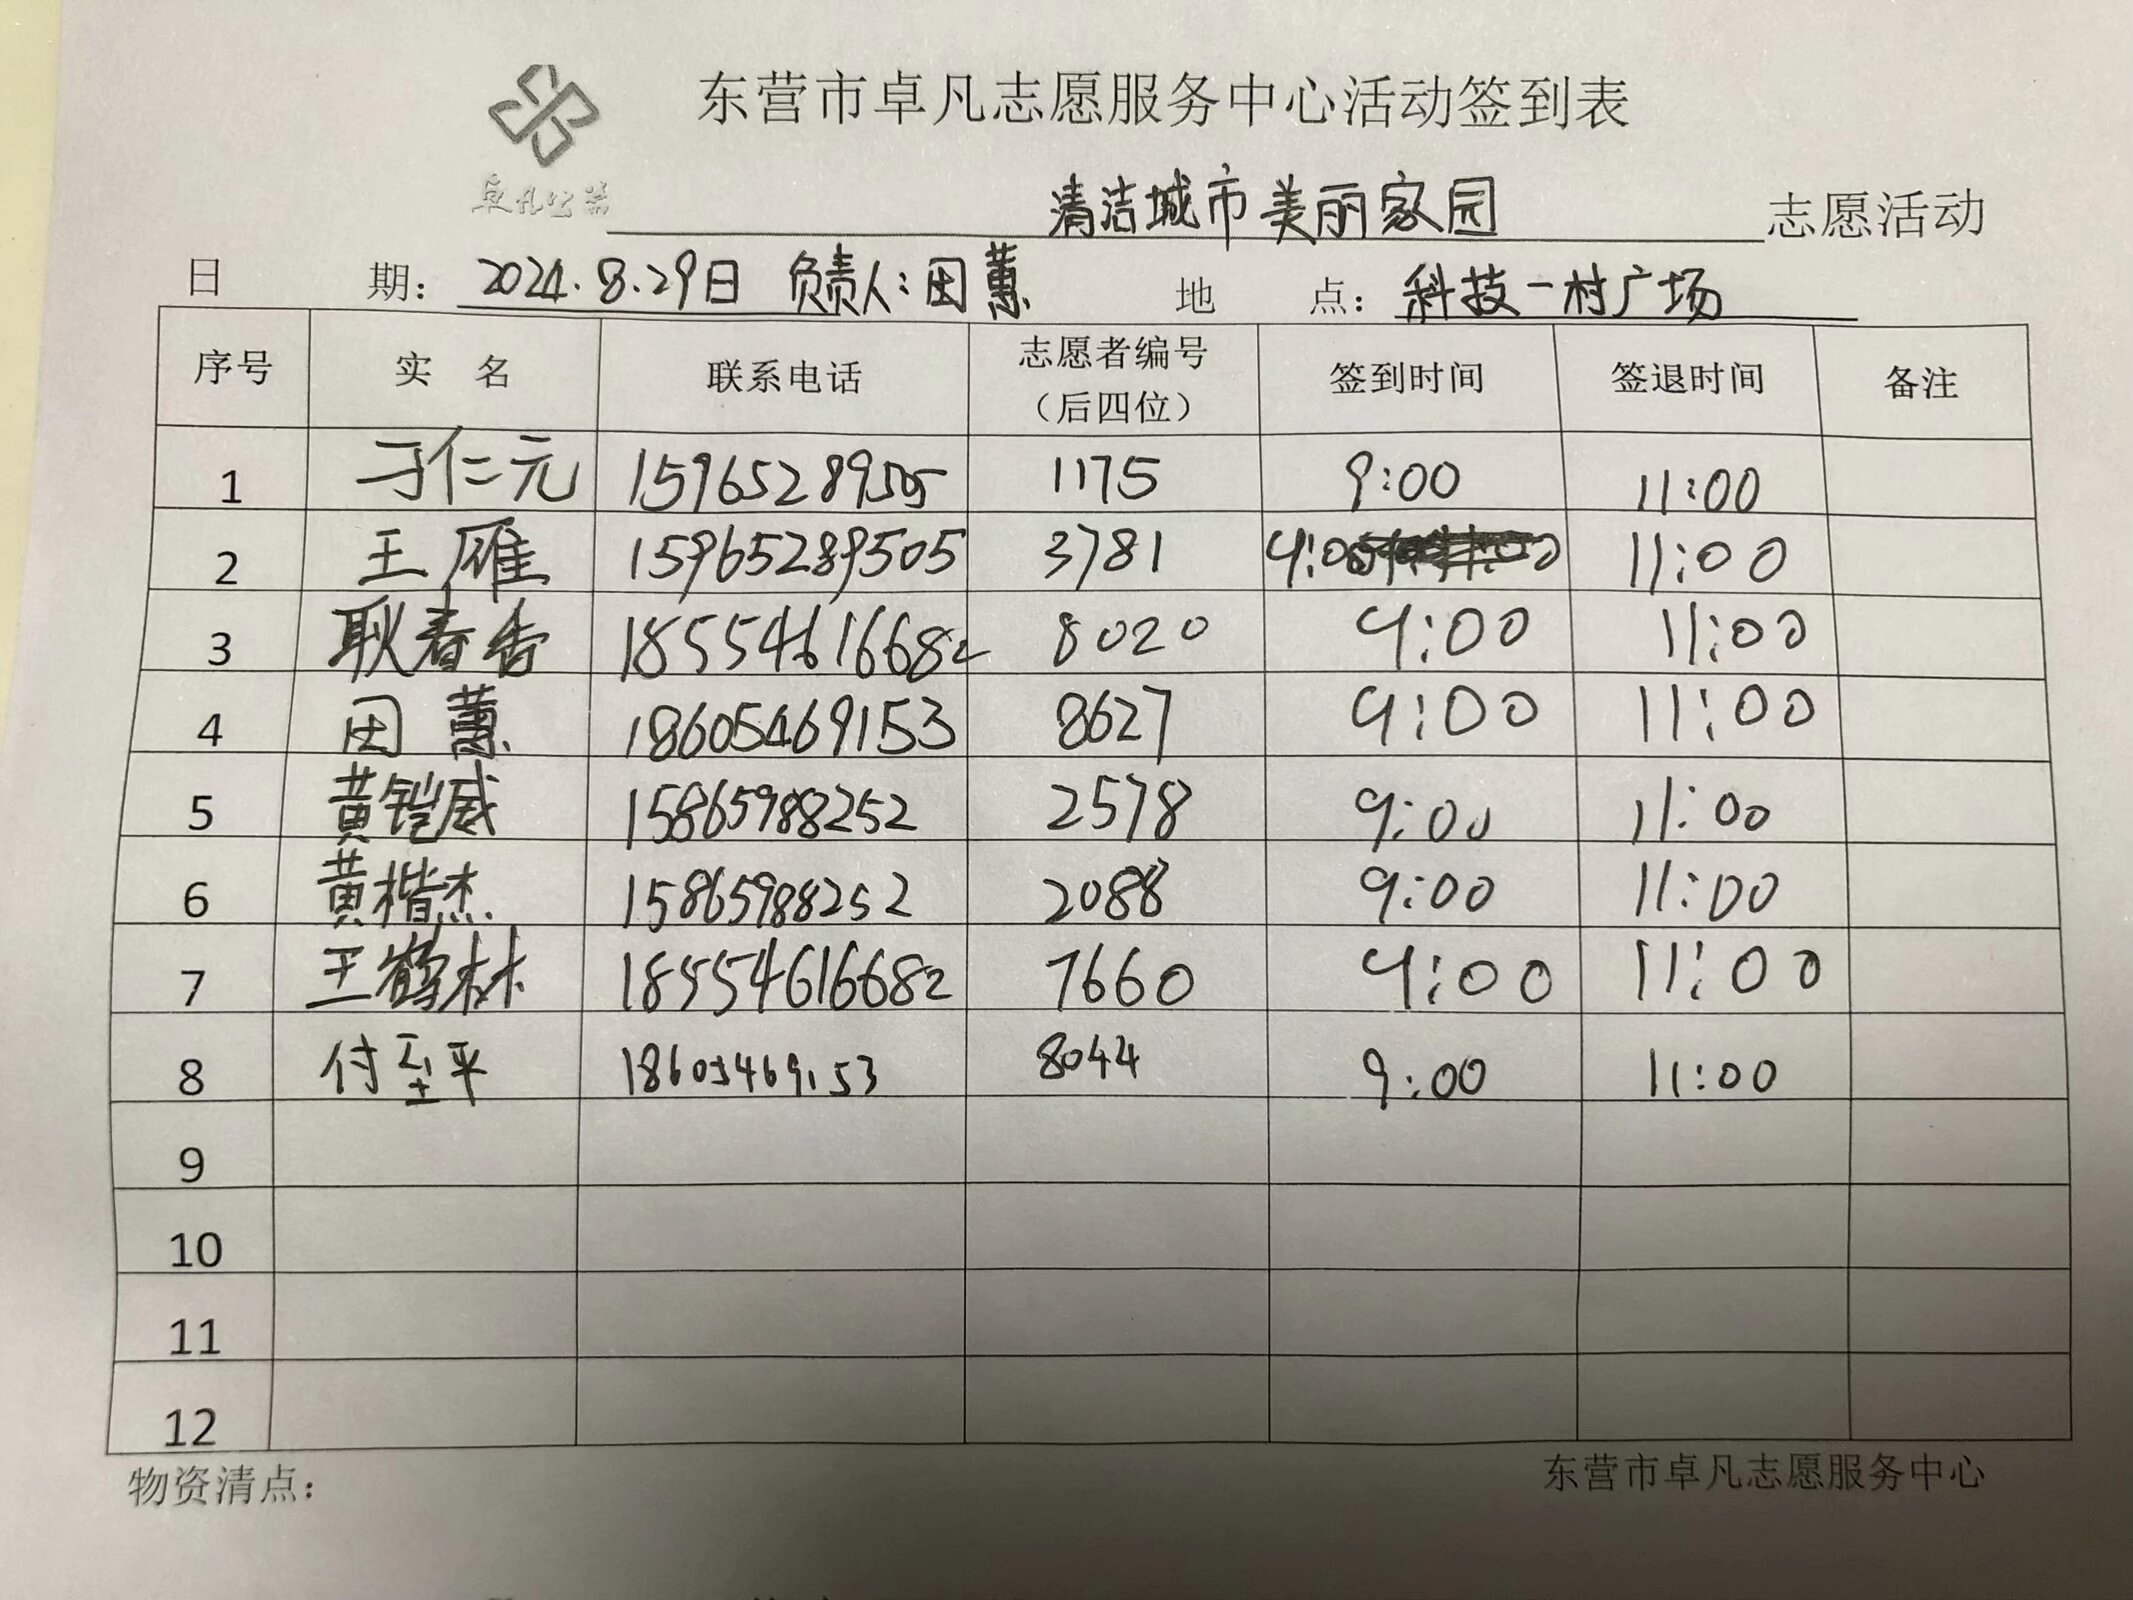 东营市卓凡志愿服务中心活动签到表
卓凡公益
清洁城市美丽家园 志愿活动
日 期：2024.8.29日 负责人：田蕙 地 点：科技一村广场
序号 实 名 联系电话 志愿者编号（后四位） 签到时间 签退时间 备注
1 刁仁元 15965289505 1175 9:00 11:00
2 王雁 15965289505 3781 9:00 11:00
3 耿春香 18554616682 8020 9:00 11:00
4 田蕙 18605469153 8627 9:00 11:00
5 黄铠威 15865988252 2578 9:00 11:00
6 黄楷杰 15865988252 2088 9:00 11:00
7 王鹤林 18554616682 7660 9:00 11:00
8 付至平 18605469153 8044 9:00 11:00
9
10
11
12
物资清点： 东营市卓凡志愿服务中心